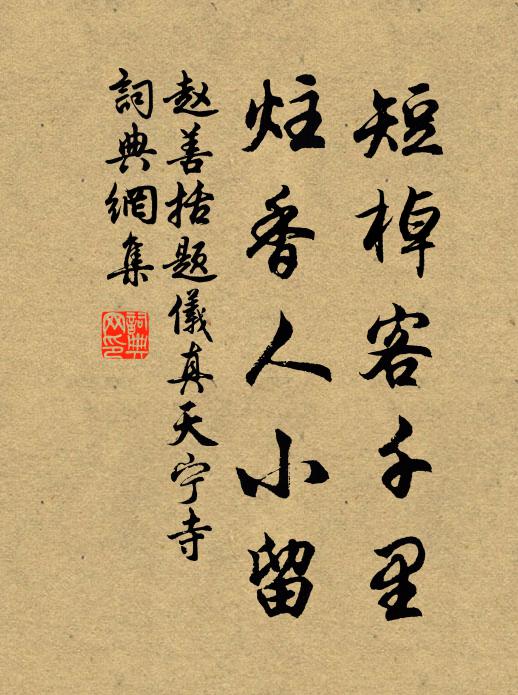 短棹客千里
炷香人小留
赵善括题儀真天宁寺
詞典網集
詞典
网印